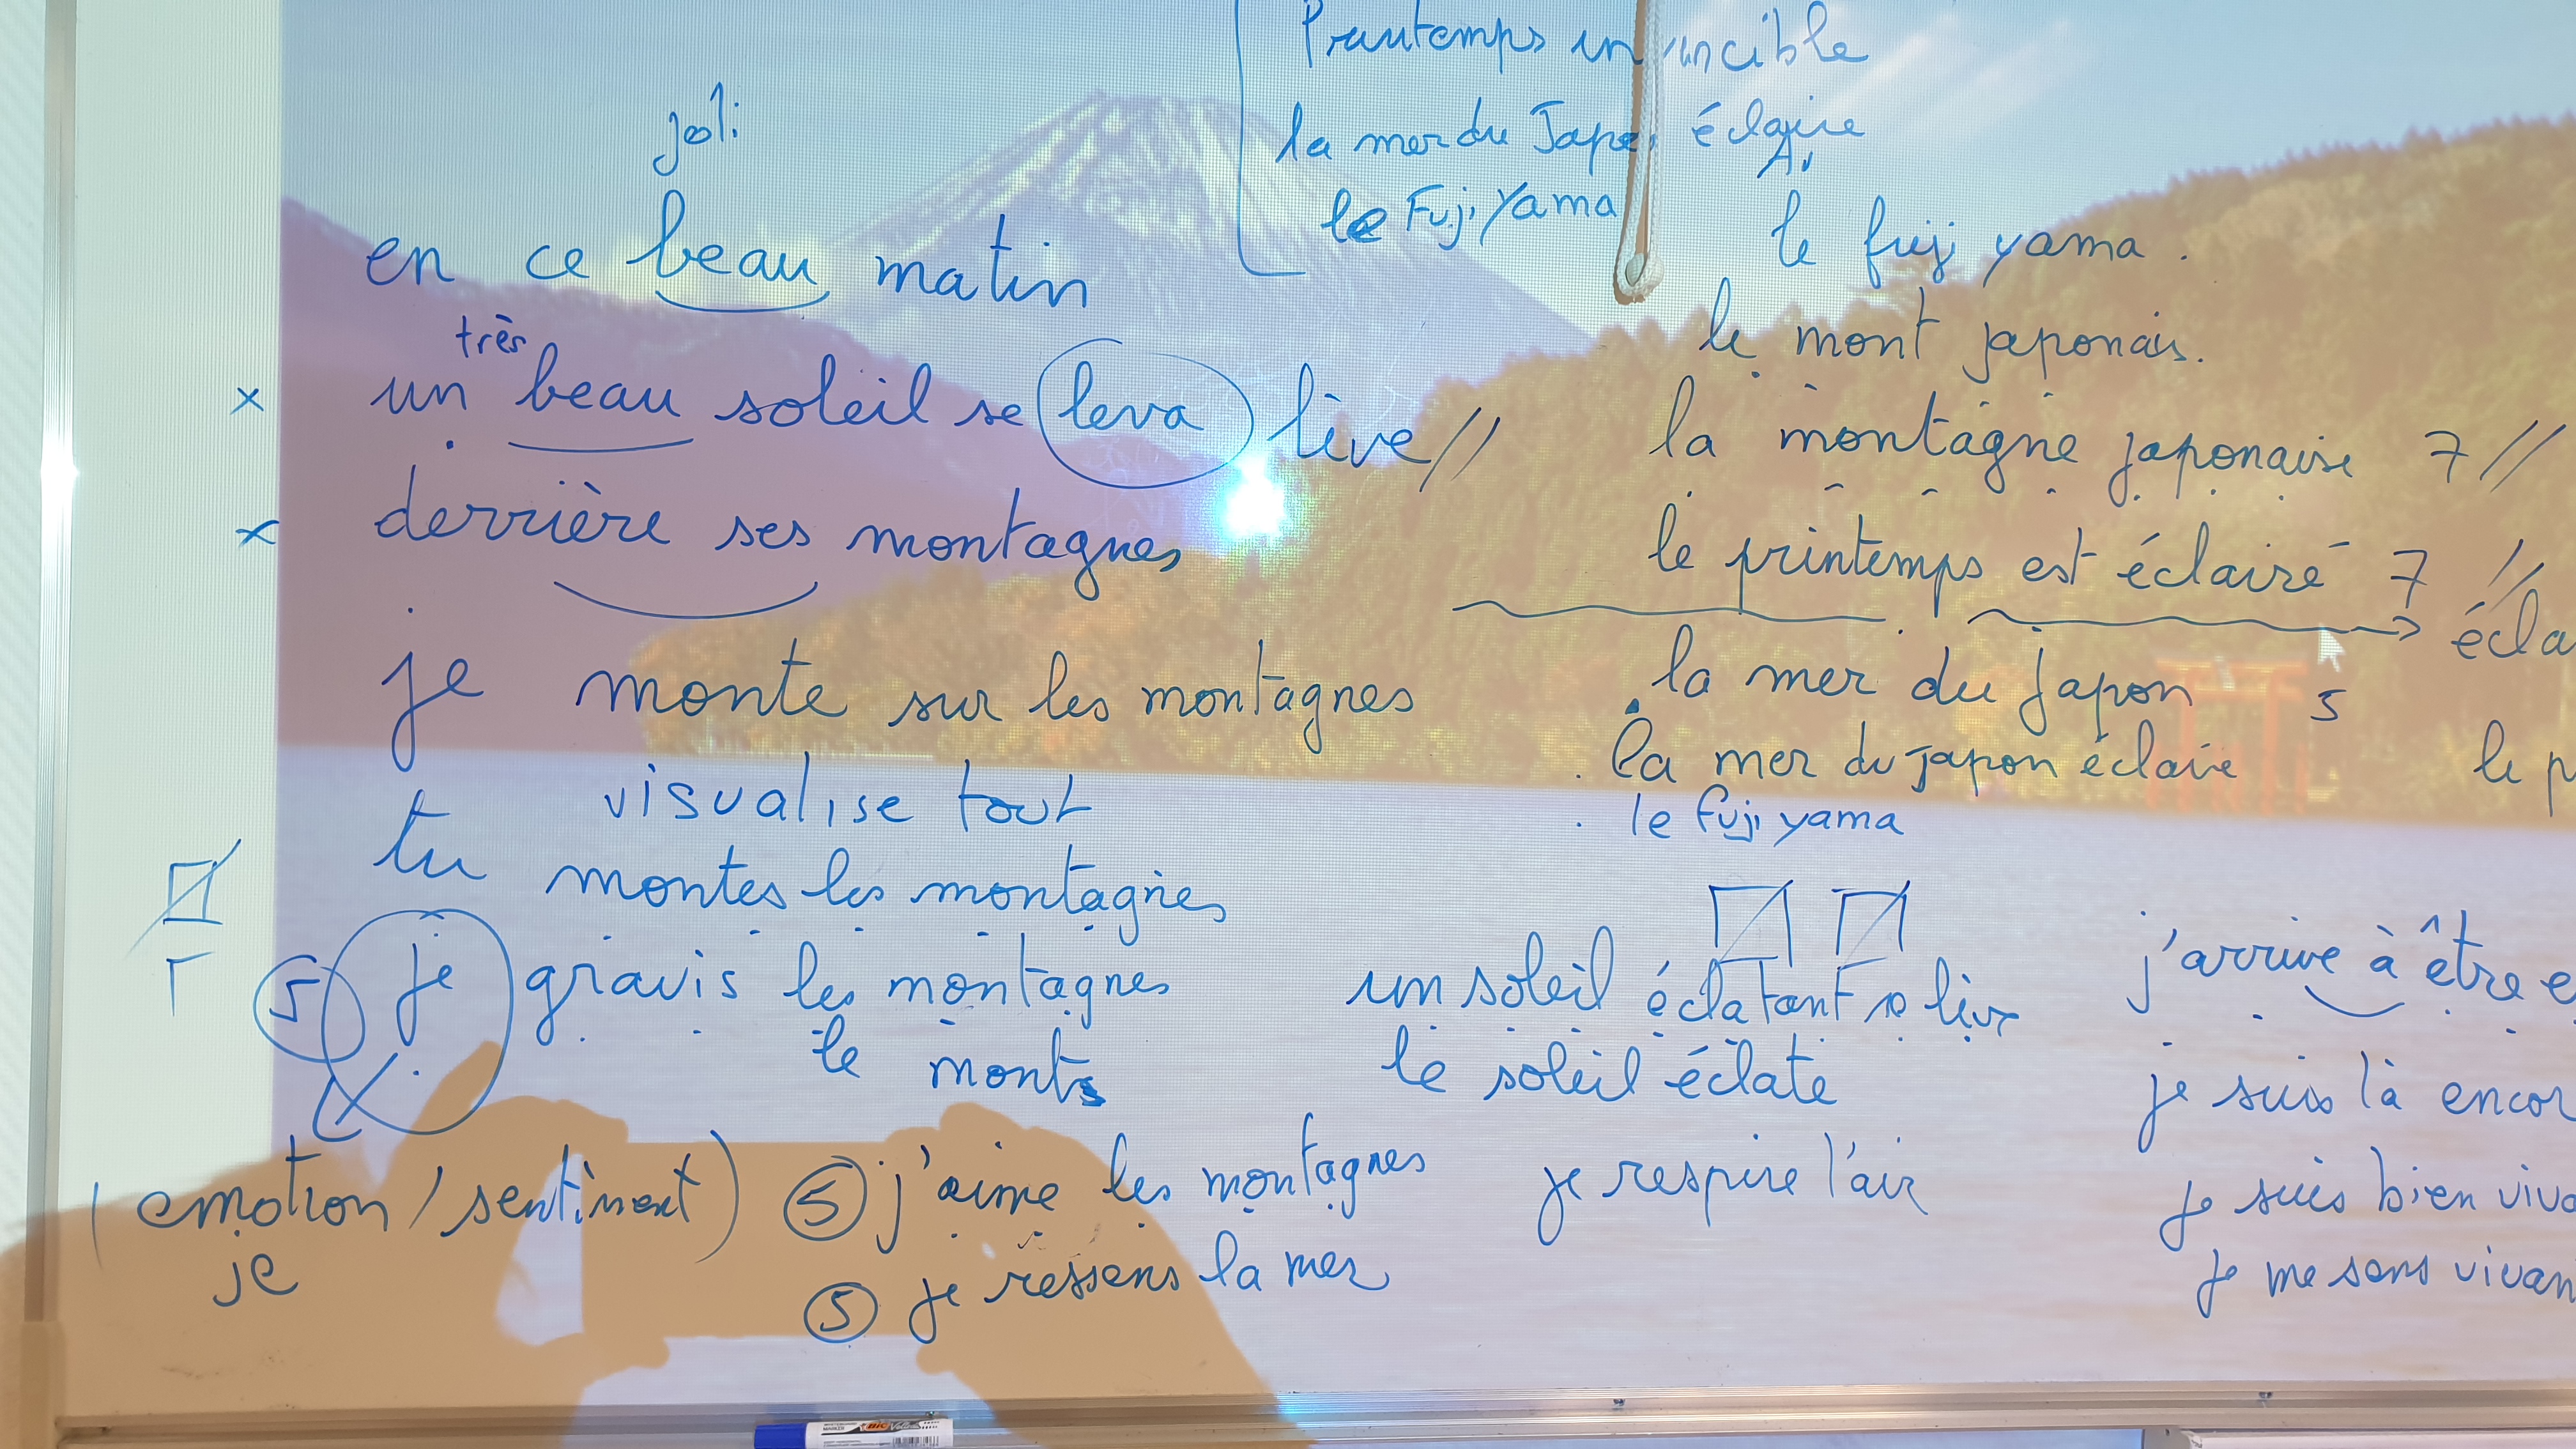 Printemps invincible
la mer du Japon éclaire
le Fuji Yama
le fuji yama.
le mont japonais.
la montagne japonaise 7 //
le printemps est éclairé 7 //
écla
la mer du japon 5
la mer du japon éclaire
le fuji yama
le p
joli
en ce beau matin
très
x un beau soleil se leva lève //
x derrière ses montagnes
je monte sur les montagnes
visualise tout
tu montes les montagnes
5 je gravis les montagnes
le monts
(emotion / sentiment)
je
5 j'aime les montagnes
5 je ressens la mer
un soleil éclatant se lève
le soleil éclate
je respire l'air
j'arrive à être e
je suis là encor
je suis bien viva
je me sens vivan
BIC